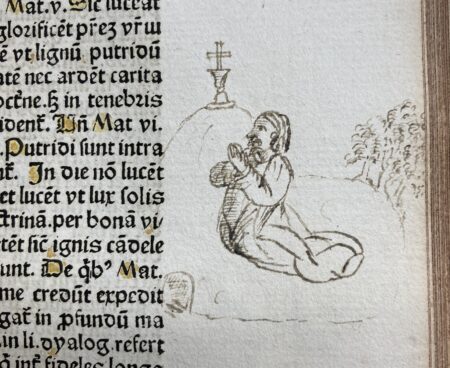 Mat.v. Sic luceat
glorificēt pr̄ez vr̄m
e vt lignū putridū
atē nec ardēt carita
octr̄ne. ſꝫ in tenebris
ident̄. Vn̄ Mat vi.
Putridi ſunt intra
In die nō lucēt
et lucēt vt lux ſolis
ctrinā. per bonā vi
tēt ſic̄ ignis cādele
unt. De q̄bꝰ Mat.
me credūt expedit
gat̄ in ꝓfundū ma
in li. dyalog. refert
int̄ fideles longe